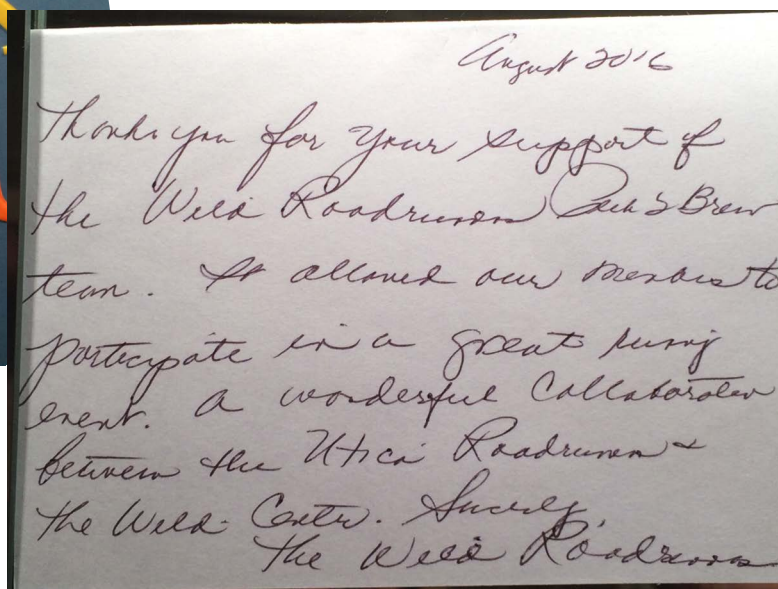 August 2016
Thank you for your support of
the Wild Roadrunners Back to Brew
team. It allowed our members to
participate in a great runing
event. A wonderful Collaboration
between the Utica Roadrunners &
the Wild Center. Sincerely,
The Wild Roadrunners